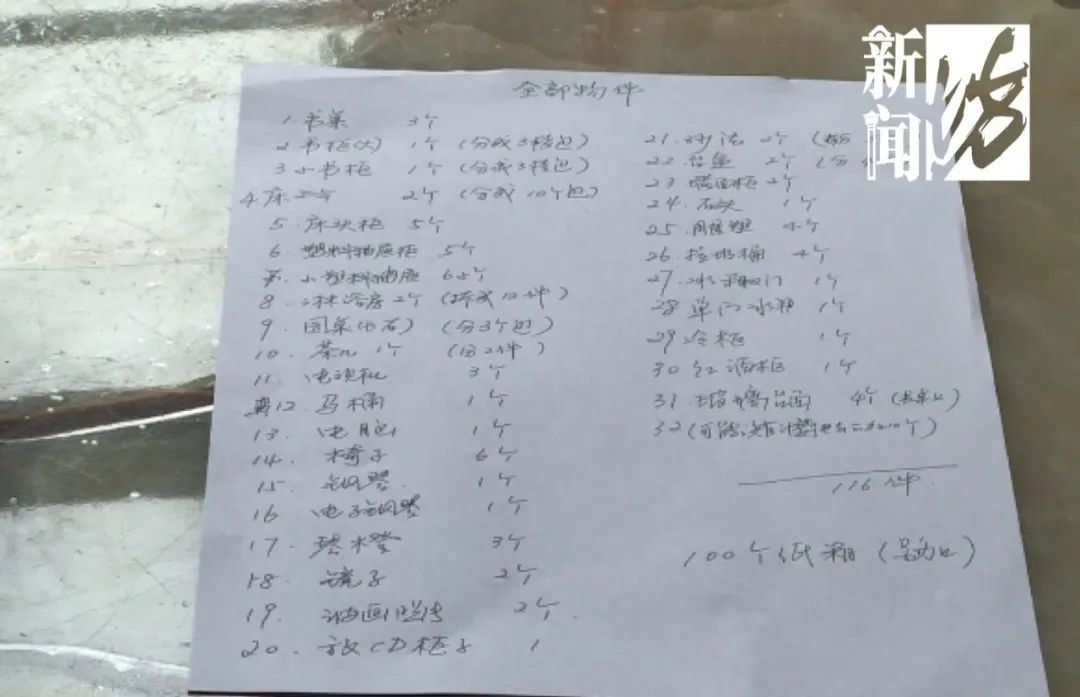 新闻坊
全部物件
1 书桌 3个
2 书柜(大) 1个 (分成3档包)
3 小书柜 1个 (分成3档包)
4. 床 2个 (分成10个包)
5. 床头柜 5个
6. 塑料抽屉柜 5个
小塑料抽屉
8. 淋浴房 2个 (拆成10件)
9. 圆桌(大石) (分3个包)
10. 茶几 1个 (分2件)
11. 电视机 3个
12. 马桶 1个
13. 电脑 1个
14. 椅子 6个
15. 钢琴 1个
16. 电子钢琴 1个
17. 琴木凳 3个
18. 镜子 2个
19. 油画 2个
20. 放CD柜子 1
21. 沙法 2个
22. 2个 (分
23. 2个
24. 石头 1个
25.
26. 垃圾桶
27. 冰箱 门 1个
28 单门冰箱 1个
29 冷柜 1个
30 红酒柜 1个
31. 玻璃台面 4个
32 (可能没有计算
116件
100个纸箱